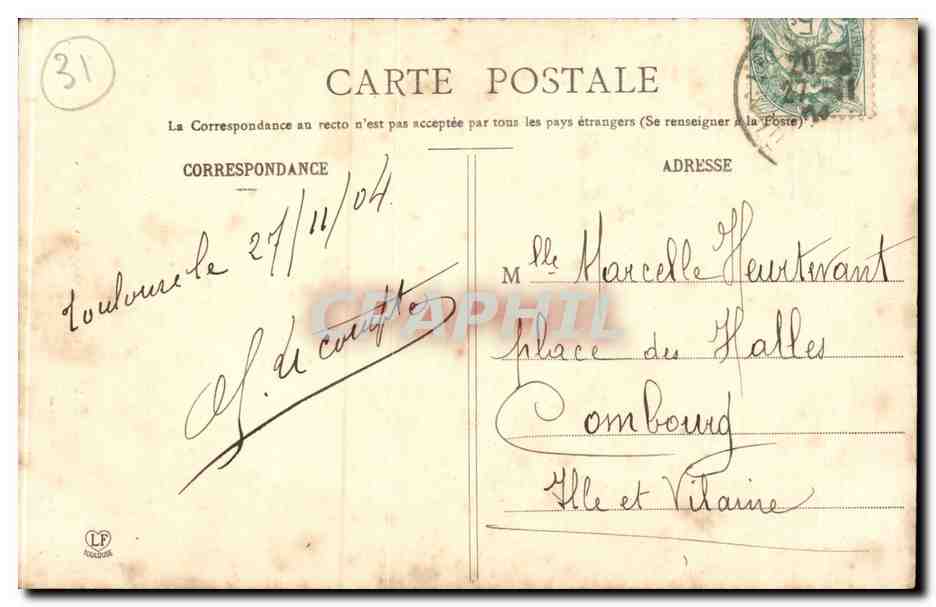 31
CARTE POSTALE
La Correspondance au recto n'est pas acceptée par tous les pays étrangers (Se renseigner à la Poste)
CORRESPONDANCE
Toulouse le 27/11/04
CPAPHIL
ADRESSE
Mlle Marcelle Heurtevant
place des Halles
Combourg
Ille et Vilaine
LF
TOULOUSE